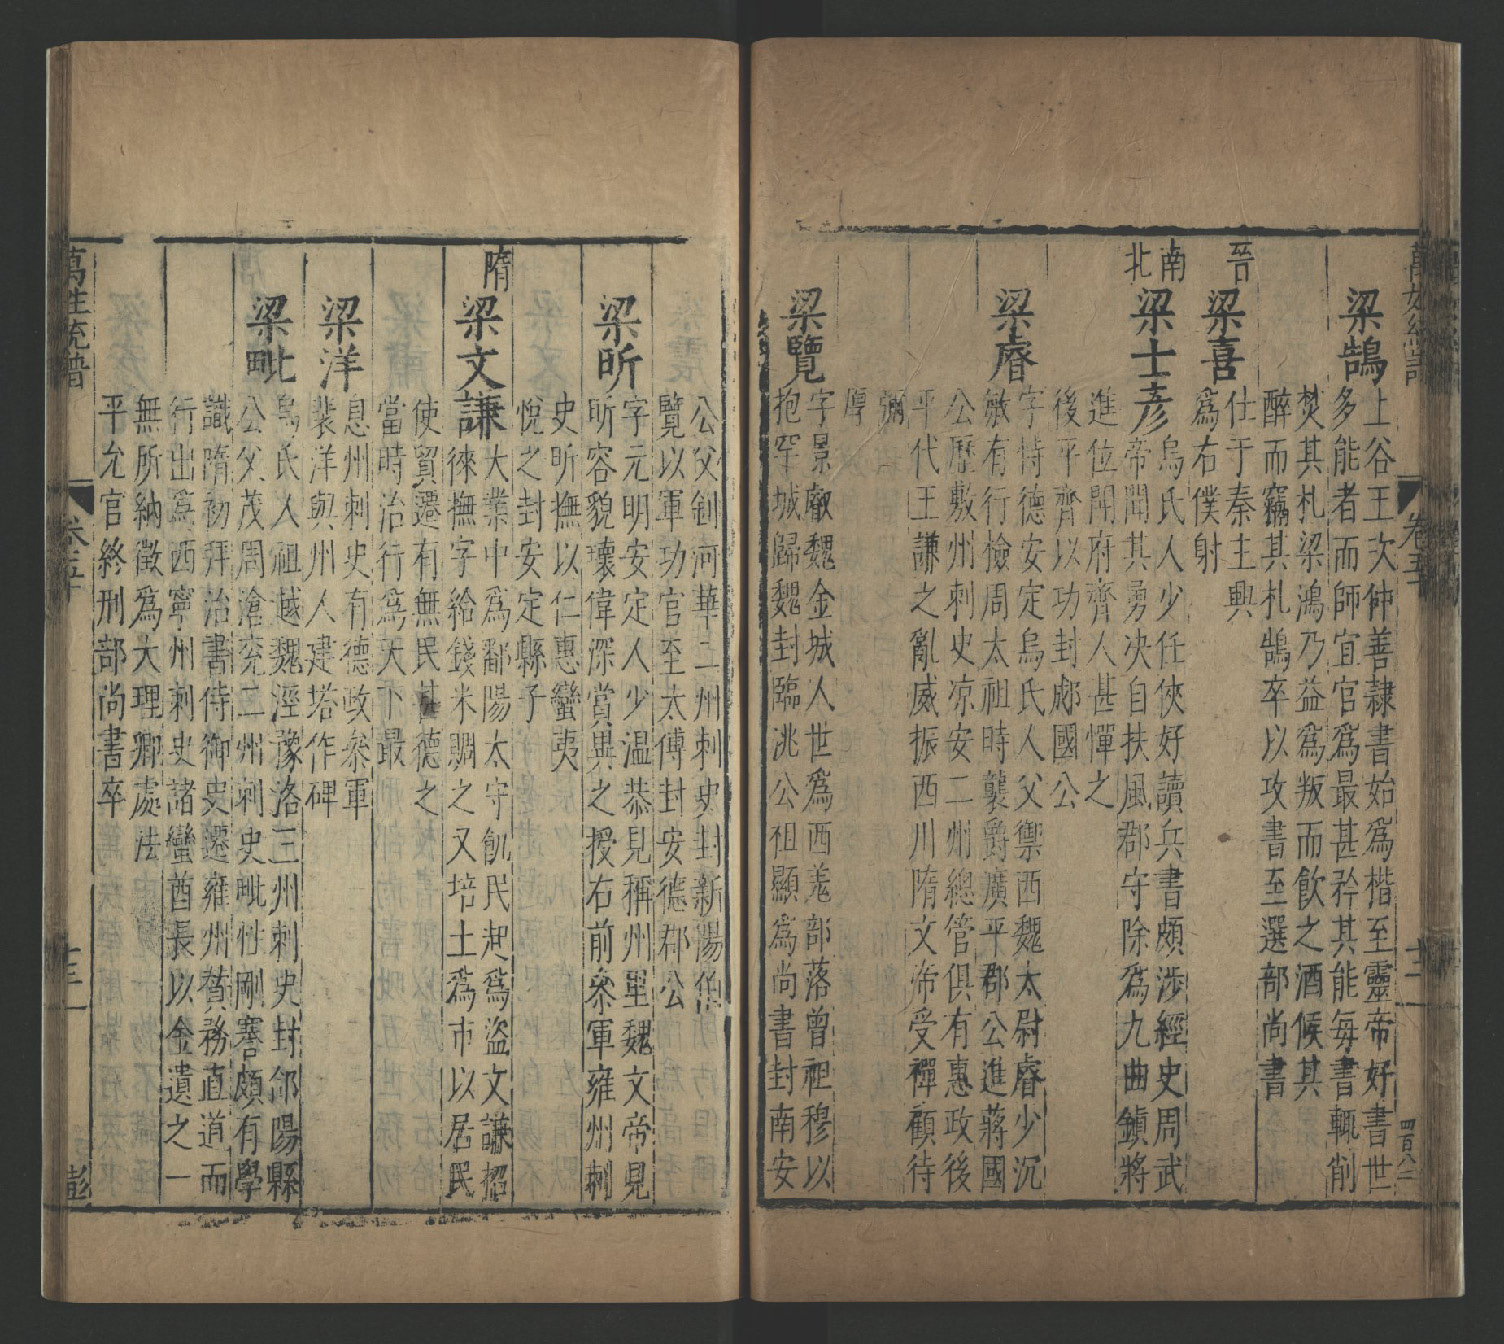 萬姓統譜
卷五十
十二
四百八二
梁鵠
上谷王次仲善隸書始爲楷至靈帝好書世
多能者而師宜官爲最甚矜其能每書輒削
焚其札梁鴻乃益爲版而飲之酒候其
醉而竊其札鵠卒以攻書至選部尚書
晉
梁喜
仕于秦主興
爲右僕射
南北
梁士彥
烏氏人少任俠好讀兵書頗涉經史周武
帝聞其勇決自扶風郡守除爲九曲鎮將
進位開府齊人甚憚之
後平齊以功封郕國公
梁睿
字恃德安定烏氏人父禦西魏太尉睿少沉
敏有行檢周太祖時襲爵廣平郡公進蔣國
公歷敷州刺史凉安二州總管俱有惠政後
平代王謙之亂威振西川隋文帝受禪顧待
彌
厚
梁覽
字景叡魏金城人世爲西羌部落曾祖穆以
抱罕城歸魏封臨洮公祖顯爲尚書封南安
公父釗河華二州刺史封新陽伯
覽以軍功官至太傅封安德郡公
梁昕
字元明安定人少温恭見稱州里魏文帝見
昕容貌瓌偉深賞異之授右前叅軍雍州刺
史昕撫以仁惠蠻夷
悅之封安定縣子
隋
梁文謙
大業中爲鄱陽太守飢民起爲盜文謙招
徠撫字給錢米賙之又培土爲市以居民
使貿遷有無民甚德之
當時治行爲天下最
梁洋
息州刺史有德政叅軍
裴洋與州人建塔作碑
梁毗
烏氏人祖越魏涇豫洛三州刺史封郃陽縣
公父茂周滄兖二州刺史毗性剛謇頗有學
識隋初拜治書侍御史遷雍州贊務直道而
行出爲西寧州刺史諸蠻酋長以金遺之一
無所納徵爲大理卿處法
平允官終刑部尚書卒
萬姓統譜
卷五十
十三
彭